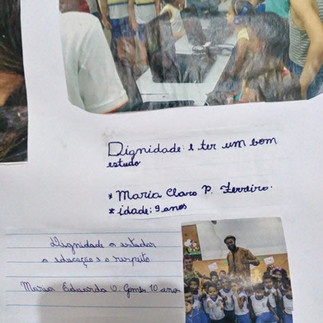 Dignidade: é ter um bom
estudo
* Maria Clara P. Ferreira.
* idade: 9 anos
Dignidade o estudar
a educação e o respeito
Maria Eduarda V. Gomes 10 anos